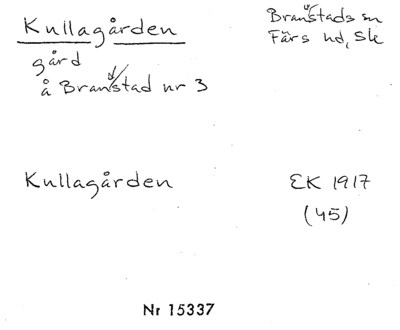 Kullagården
Branstads sn
Färs hd, Skå
gård
å Branstad nr 3
Kullagården
EK 1917
(45)
Nr 15337